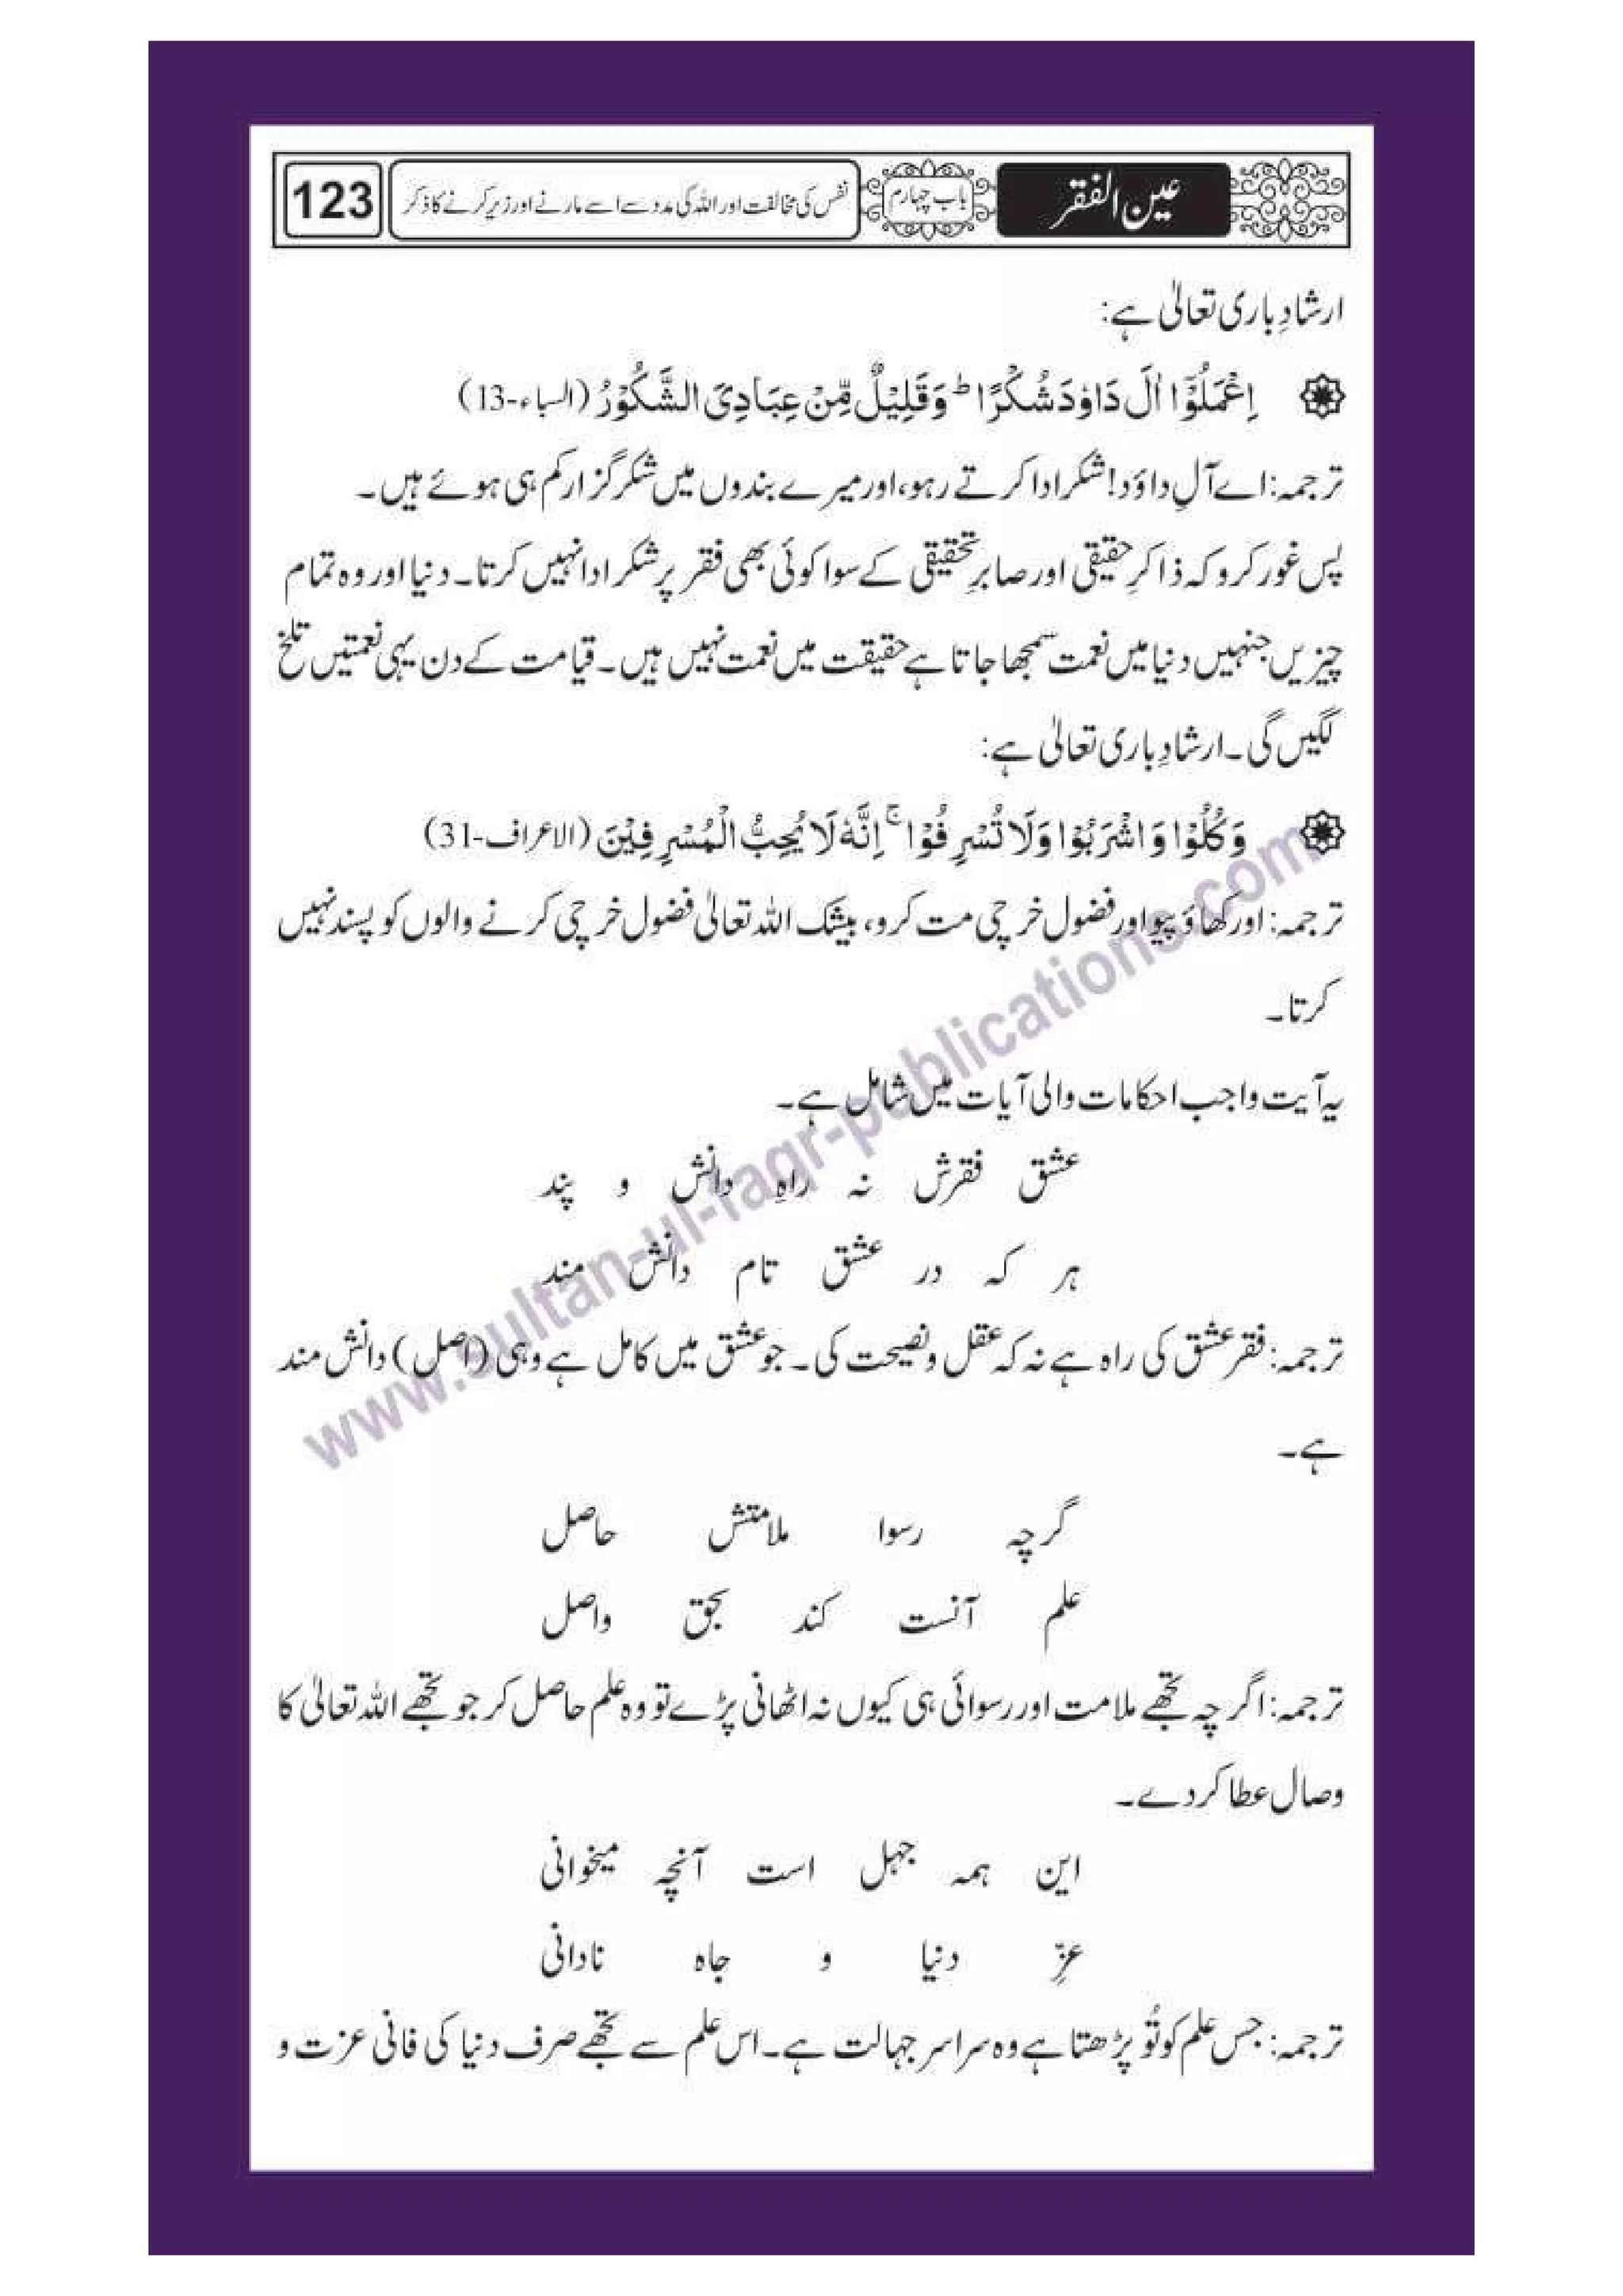 عین الفقر
باب چہارم
نفس کی مخالفت اور اللہ کی مدد سے اسے مارنے اور زیر کرنے کا ذکر
123
ارشادِ باری تعالیٰ ہے:
اِعْمَلُوْٓا اٰلَ دَاوٗدَ شُكْرًا ؕ وَ قَلِیْلٌ مِّنْ عِبَادِیَ الشَّكُوْرُ (السباء-13)
ترجمہ: اے آلِ داؤد! شکر ادا کرتے رہو، اور میرے بندوں میں شکر گزار کم ہی ہوئے ہیں۔
پس غور کرو کہ ذاکرِ حقیقی اور صابرِ تحقیقی کے سوا کوئی بھی فقر پر شکر ادا نہیں کرتا۔ دنیا اور وہ تمام
چیزیں جنہیں دنیا میں نعمت سمجھا جاتا ہے حقیقت میں نعمت نہیں ہیں۔ قیامت کے دن یہی نعمتیں تلخ
لگیں گی۔ ارشادِ باری تعالیٰ ہے:
وَ كُلُوْا وَ اشْرَبُوْا وَ لَا تُسْرِفُوْا ۚ اِنَّهٗ لَا یُحِبُّ الْمُسْرِفِیْنَ (الاعراف-31)
ترجمہ: اور کھاؤ پیو اور فضول خرچی مت کرو، بیشک اللہ تعالیٰ فضول خرچی کرنے والوں کو پسند نہیں
کرتا۔
یہ آیت واجب احکامات والی آیات میں شامل ہے۔
عشق فقرش نہ راہِ دانش و پند
ہر کہ در عشق تام دانش مند
ترجمہ: فقر عشق کی راہ ہے نہ کہ عقل و نصیحت کی۔ جو عشق میں کامل ہے وہی (اصل) دانش مند
ہے۔
گرچہ رسوا ملامتش حاصل
علم آنست کند بحق واصل
ترجمہ: اگرچہ تجھے ملامت اور رسوائی ہی کیوں نہ اٹھانی پڑے تو وہ علم حاصل کر جو تجھے اللہ تعالیٰ کا
وصال عطا کر دے۔
این ہمہ جہل است آنچہ میخوانی
عزِّ دنیا و جاہ نادانی
ترجمہ: جس علم کو تُو پڑھتا ہے وہ سراسر جہالت ہے۔ اس علم سے تجھے صرف دنیا کی فانی عزت و
www.sultan-ul-faqr-publications.com